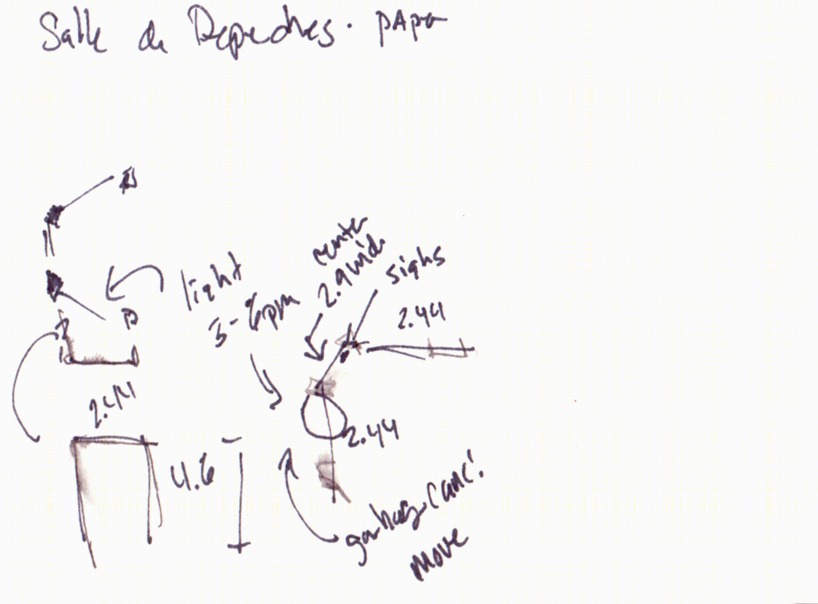 Salle de Depeches. PAPA
light
3-6pm
center
2.9 wide
signs
2.44
2.44
4.6
2.44
garbage can!
move